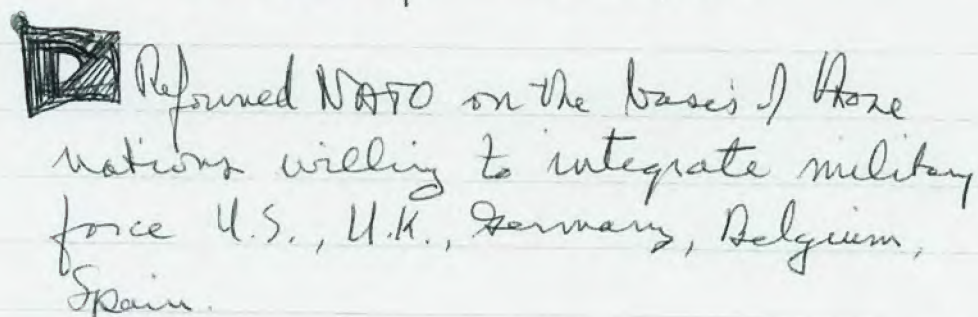 D Reformed NATO on the basis of those
nations willing to integrate military
force U.S., U.K., Germany, Belgium,
Spain.